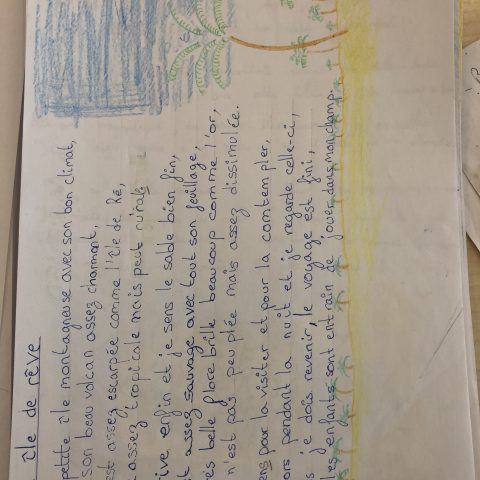 île de rêve
petite île montagneuse avec son bon climat,
son beau volcan assez charmant,
est assez escarpée comme l'île de Ré,
assez tropicale mais peut rurale
ive enfin et je sens le sable bien fin,
t assez sauvage avec tout son feuillage,
ès belle flore brille beaucoup comme l'or,
n'est pas peuplée mais assez dissimulée.
ens pour la visiter et pour la comtempler,
ors pendant la nuit et je regarde celle-ci,
s je dois revenir, le voyage est fini,
les enfants sont entrain de jouer dans mon champ.